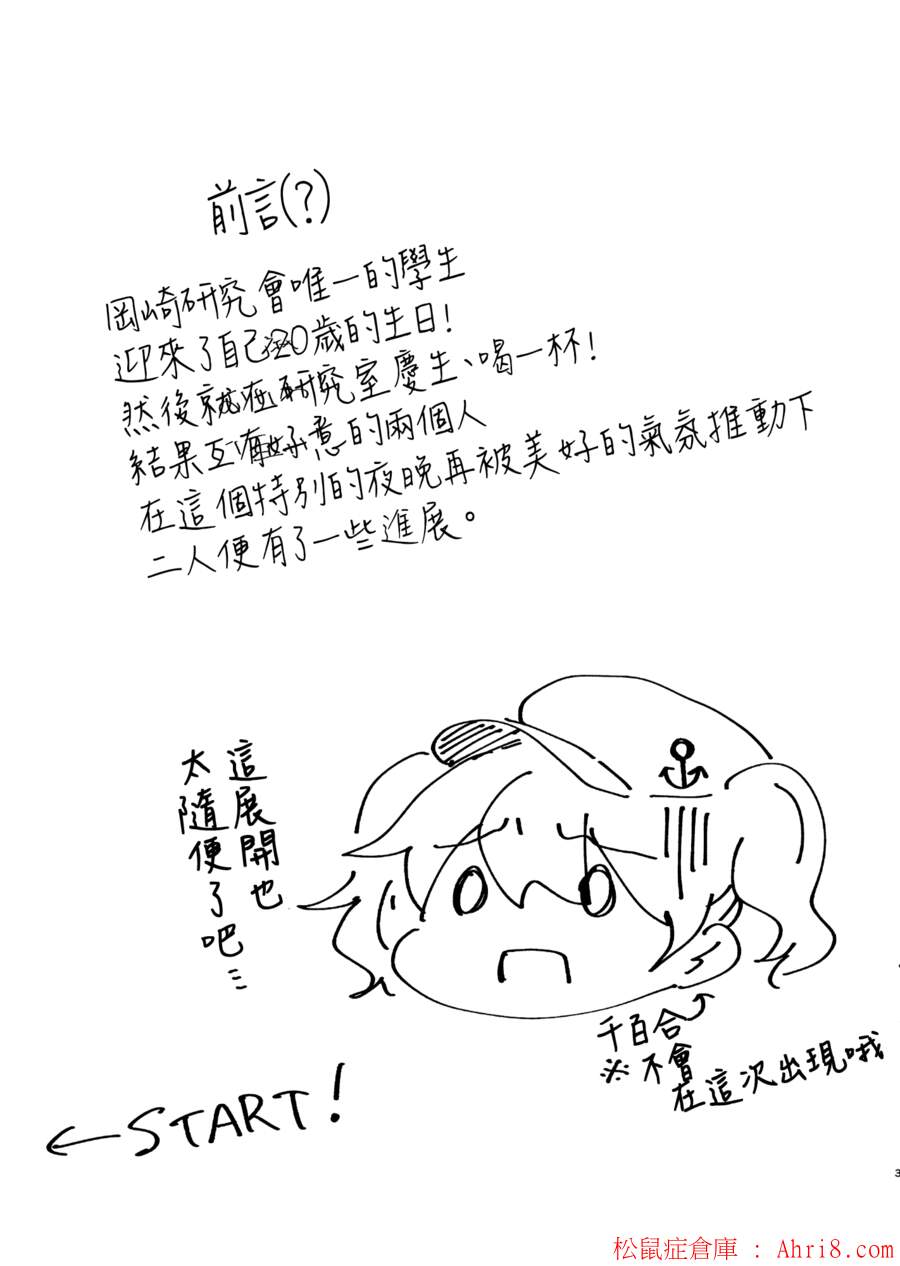 前言(?)
岡崎研究會唯一的學生
迎來了自己20歲的生日!
然後就在研究室慶生、喝一杯!
結果互有好意的兩個人
在這個特別的夜晚再被美好的氣氛推動下
二人便有了一些進展。
這展開也
太隨便了吧…
千百合
※不會
在這次出現哦
←START!
3
松鼠症倉庫 : Ahri8.com